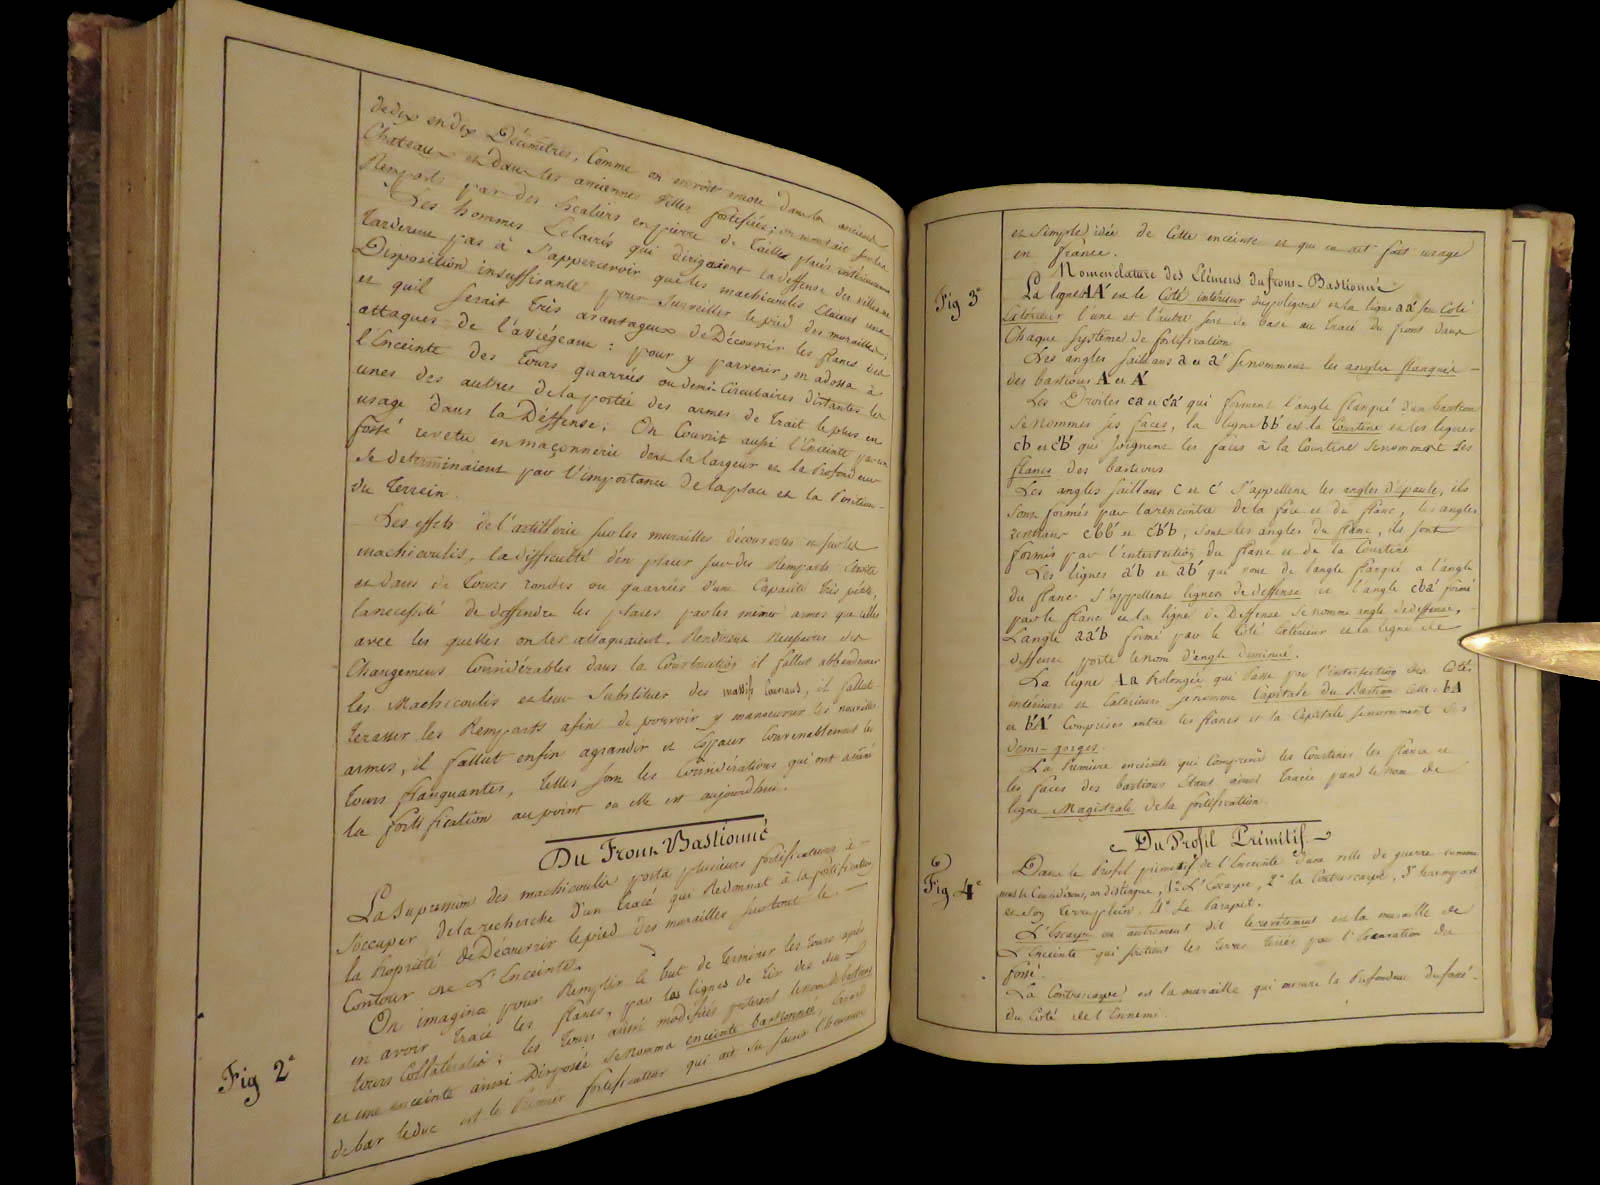 de dix en dix Décimètres, Comme on en voit encore dans les anciens
Chateaux et dans les anciennes Villes fortifiées; on montait sur les
Remparts par des Escaliers en pierre de Taille placés intérieurement
Les hommes Eclairés qui dirigeaient la deffense des villes ne
tarderent pas à s'appercevoir que les machicoulis étaient une
Disposition insuffisante pour surveiller le pied des murailles,
et qu'il serait très avantageux de Découvrir les flancs des
attaques de l'assiégeant : pour y parvenir, on adossa à
l'Enceinte des Tours quarrées ou demi-Circulaires distantes les
unes des autres de la portée des armes de Trait le plus en
usage dans la Deffense; On Couvrit aussi l'Enceinte par un
fossé revetu en maçonnerie dont la largeur et la Profondeur
se determinaient par l'importance de la place et la Position
du Terrein.
Les effets de l'artillerie sur les murailles découvertes et sur les
machicoulis, la difficulté d'en placer sur des Remparts étroits
et dans de Tours rondes ou quarrées d'une Capacité très petite,
la necessité de deffendre les places par les mêmes armes que celles
avec les quelles on les attaquaient. Rendirent necessaires des
Changemens Considérables dans la Construction il fallut abbandonner
les Machicoulis et leur Substituer des massifs Couvrans, il fallut
terrasser les Remparts afin de pouvoir y manoeuvrer les nouvelles
armes, il fallut enfin agrandir et Espacer Convenablement les
tours flanquantes, telles sont les Considérations qui ont amené
la fortification au point ou elle est aujourdhui.
Du Front Bastionné
La Supression des machicoulis porta plusieurs fortificateurs à
s'occuper de la recherche d'un tracé qui Redonnat à la fortification
la Propriété de Découvrir le pied des murailles sur tout le
Contour de L'Enceinte.
Fig 2e
On imagina pour Remplir le but de terminer les tours après
en avoir tracé les flancs, par les lignes de tir des deux
tours Collatérales; les tours ainsi modifiées prirent le nom de bastions
et une enceinte ainsi Disposée se nomma enceinte bastionnée,
de bar le duc est le Premier fortificateur qui ait su saisir l'heureuse
et Simple idée de Cette enceinte et qui en ait fait usage
en france.
Nomenclature des Elémens du front-Bastionné
Fig 3e
La ligne AA' est le Coté intérieur du poligone et la ligne aa' son Coté
Extérieur l'une et l'autre sont de base au tracé du front dans
Chaque Système de fortification
Les angles saillans a et a' se nomment les angles flanqués
des bastions A et A'
Les Droites ca et c'a' qui forment l'angle flanqué d'un bastion
se nomment ses faces, la ligne bb' est la Courtine et les lignes
cb et c'b' qui joignent les faces à la Courtine se nomment les
flancs des bastions
Les angles saillans c et c' s'appellent les angles d'épaule, ils
sont formés par la rencontre de la face et du flanc, les angles
rentrans cbb' et c'b'b, sont les angles du flanc, ils sont
formés par l'intersection du flanc et de la Courtine
Les lignes a'b et ab' qui vont de l'angle flanqué a l'angle
du flanc s'appellent lignes de deffense et l'angle cba' formé
par le flanc et la ligne de Deffense se nomme angle de deffense,
L'angle aa'b formé par le Coté Extérieur et la ligne de
deffense porte le nom d'angle diminué.
La ligne Aa Prolongée qui Passe par l'intersection des Cotés
intérieurs et Extérieurs se nomme Capitale du Bastion celles bA
et b'A' Comprises entre les flancs et la Capitale se nomment les
demi-gorges.
La Première enceinte qui Comprend les Courtines les flancs et
les faces des bastions étant ainsi tracée prend le nom de
ligne Magistrale de la fortification.
Du Profil Primitif
Fig 4e
Dans le Profil primitif de l'Enceinte d'une ville de guerre comme
nous le Considérons, on distingue, 1° L'Escarpe, 2° la Contrescarpe, 3° le rempart
et son terreplein, 4° Le Parapet.
L'Escarpe ou autrement dit le revêtement est la muraille de
L'Enceinte qui soutient les terres tirées par l'Excavation du
fossé.
La Contrescarpe est la muraille qui mesure la Profondeur du fossé
du Coté de l'Ennemi.